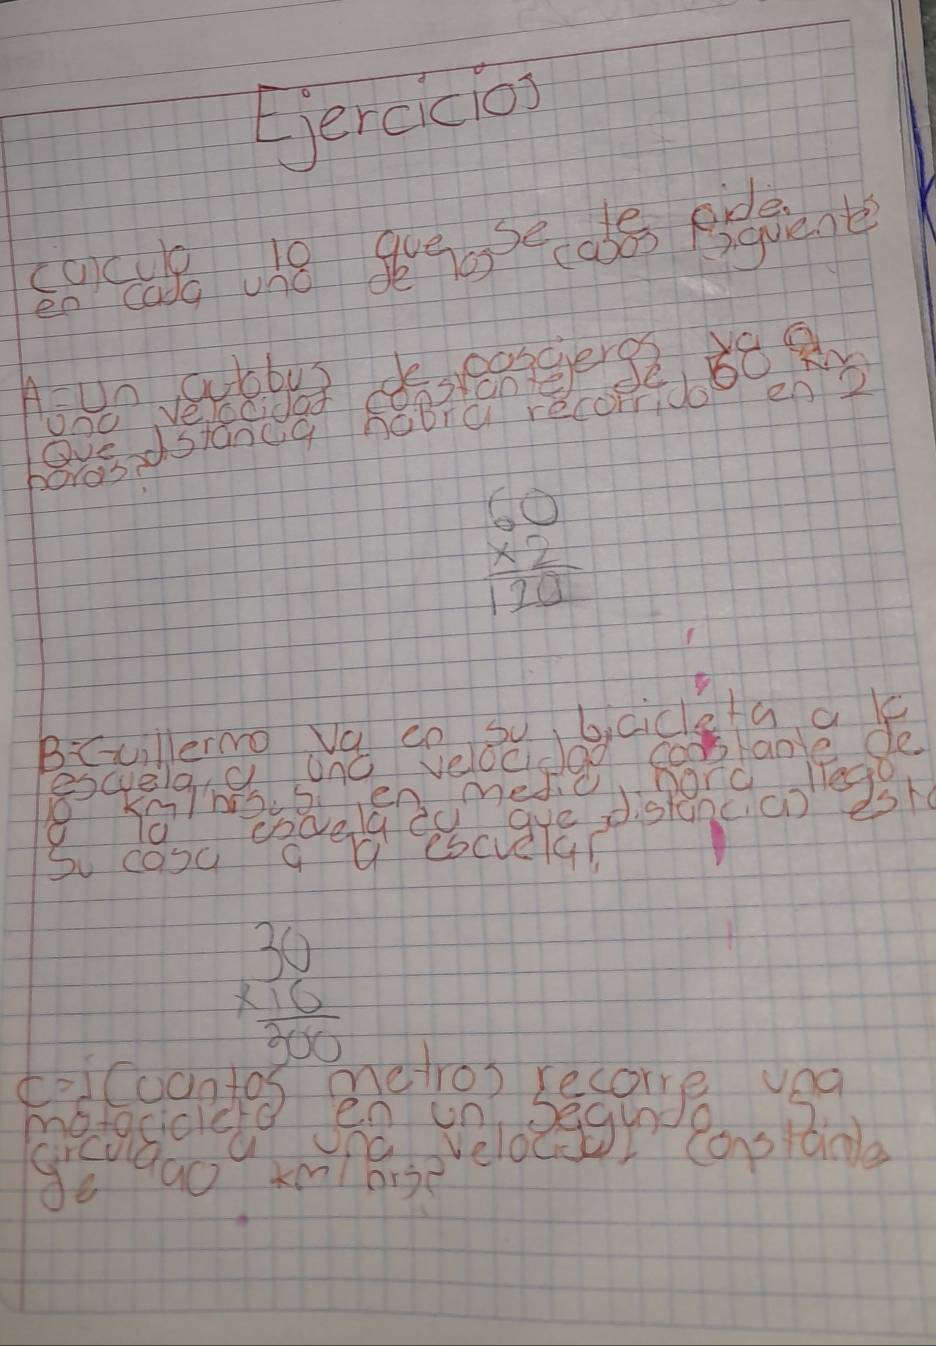 Ejercicios
calcula lo que se te pide.
en cada uno de los casos siguiente
A= Un autobus de pasajeros va a
una velocidad constante de 60 km
Que distancia habra recorrido en 2
horas?
60
x 2
120
B= Guillermo va en su bicicleta a
escuela, a una velocidad constante de
10 km/hrs. si en media hora llego
a la escuela a que distancia esta
su casa a la escuela?
30
x 10
300
C= ¿Cuantos metros recorre una
motocicleta en un segundo
circula a una velocidad constante
de 90 km/hrs?